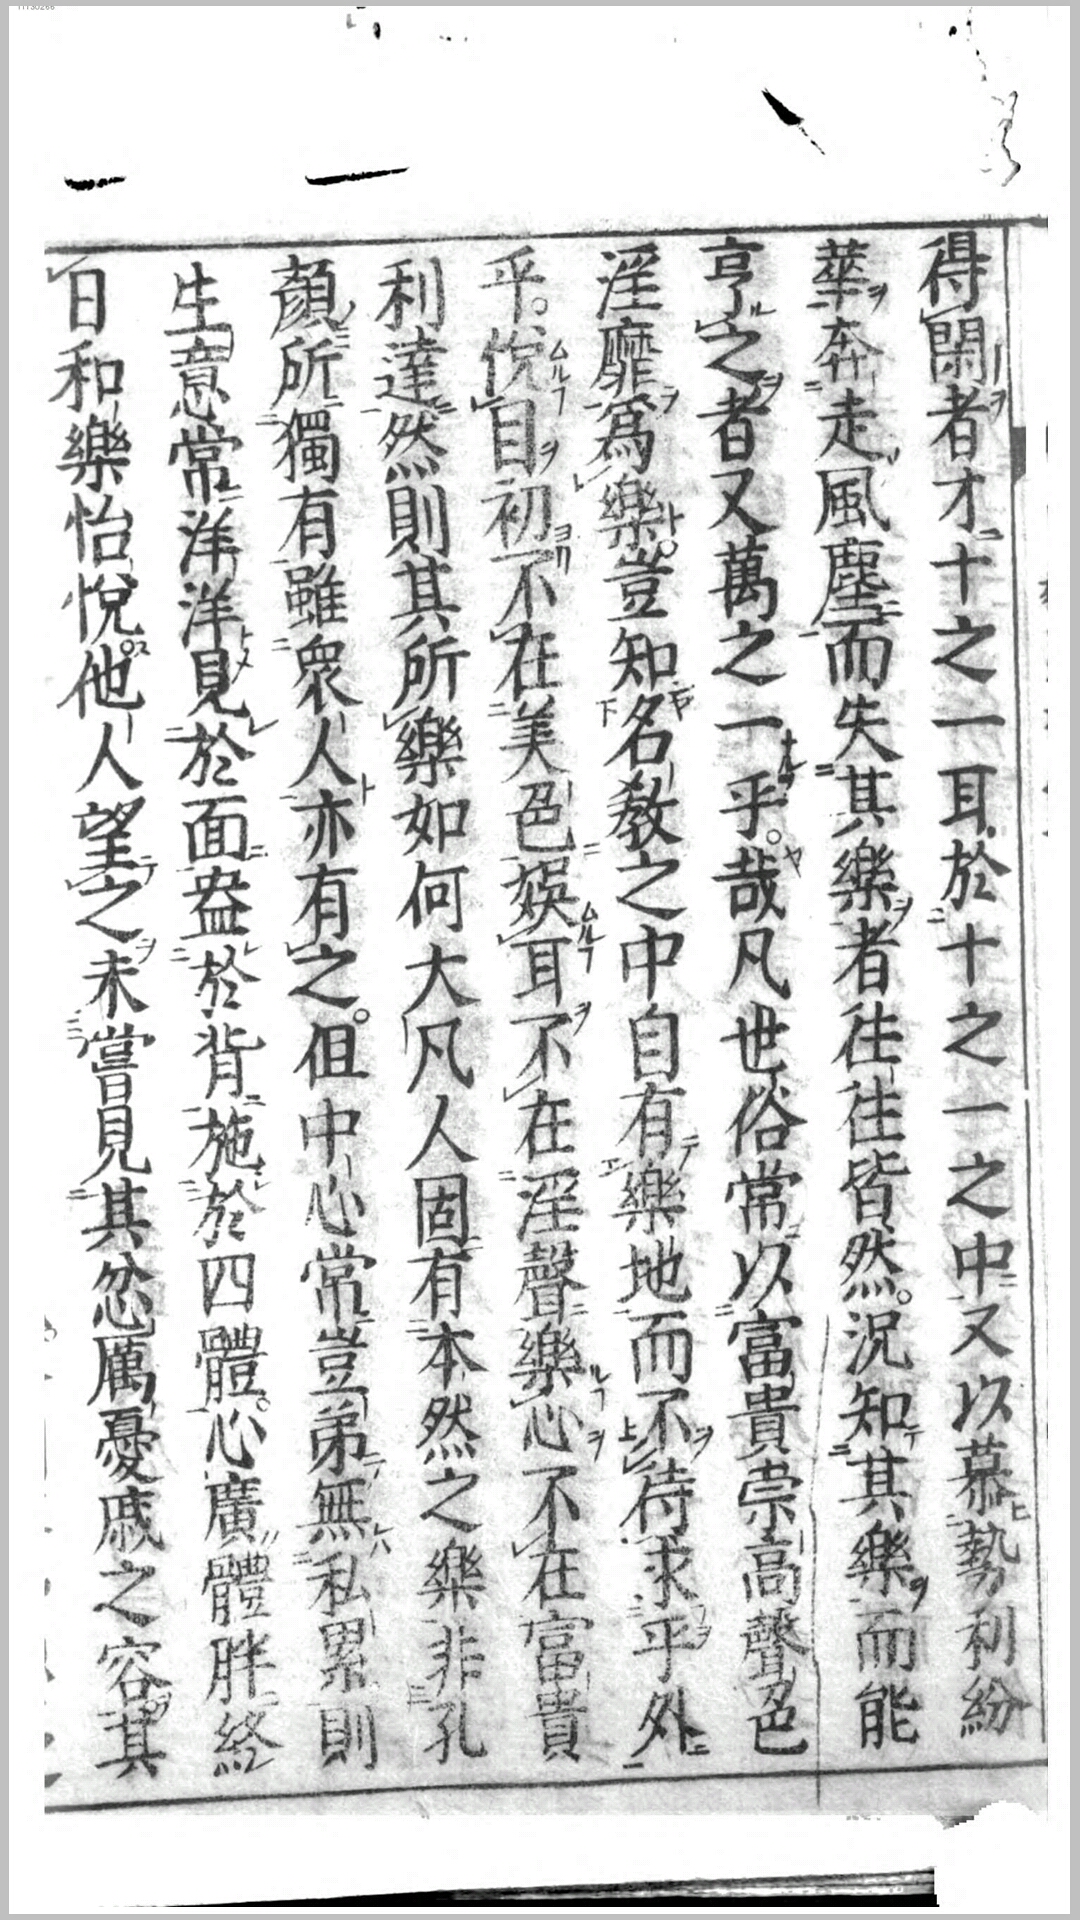 得閑者才十之一耳於十之一之中又以慕勢利紛
華奔走風塵而失其樂者往往皆然。況知其樂而能
享之者又萬之一乎。哉凡世俗常以富貴崇高聲色
淫靡爲樂。豈知名教之中自有樂地而不待求乎外
乎。悅目初不在美色娯耳不在淫聲樂心不在富貴
利達然則其所樂如何大凡人固有本然之樂非孔
顏所獨有雖衆人亦有之。但中心常豈弟無私累則
生意常洋洋見於面盎於背施於四體。心廣體胖終
日和樂怡悅。他人望之未嘗見其忿厲憂戚之容。其